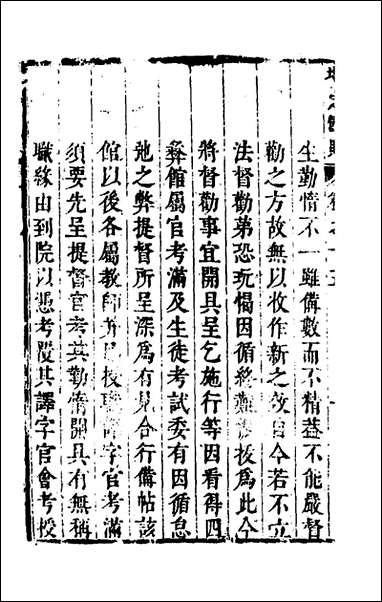 增定館則 卷之十五
生勤惰不一雖備數而不精葢不能嚴督
勸之方故無以收作新之效自今若不立
法督勸苐恐玩愒因循終難振拔爲此今
將督勸事宜開具呈乞施行等因看得四
彝館屬官考滿及生徒考試委有因循怠
弛之弊提督所呈深爲有見合行備帖該
館以後各屬教師并授職譯字官考滿
須要先呈提督官考其勤惰開具有無稱
職緣由到院以憑考覆其譯字官會考授